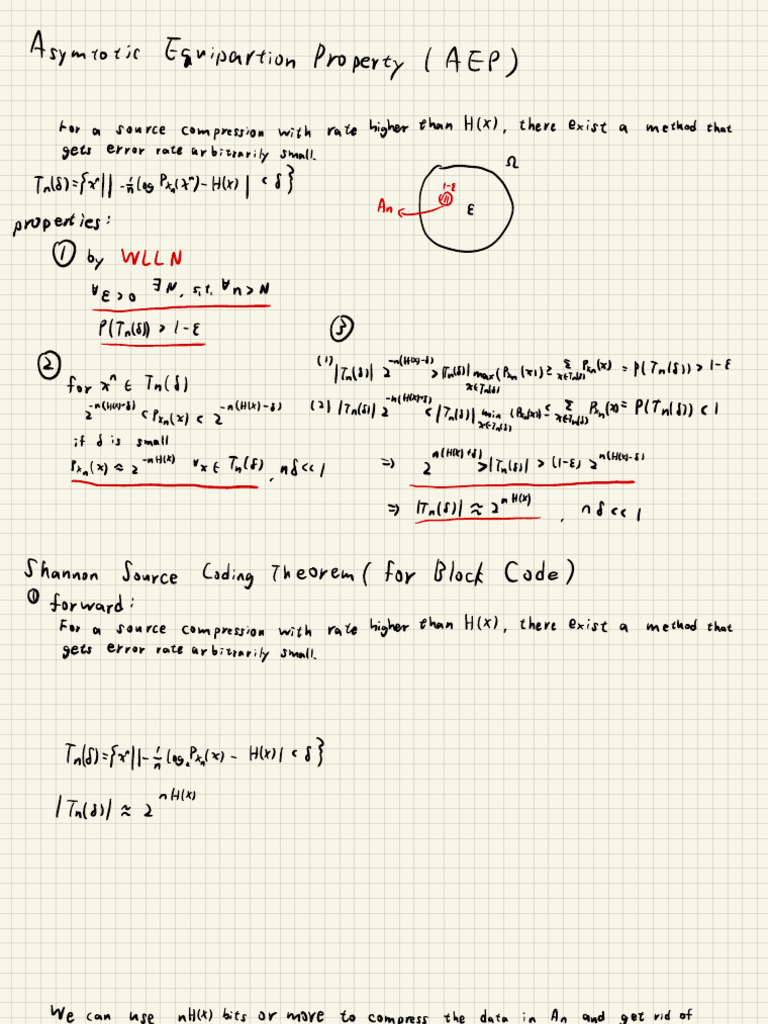 Asymtotic Equipartion Property (AEP)
For a source compression with rate higher than H(X), there exist a method that
gets error rate arbitrarily small.
Tₙ(δ)={xⁿ||-1/n log P_Xₙ(xⁿ)-H(X)| < δ}
Ω
1-ε
Aₙ
ε
properties:
① by WLLN
∀ε>0 ∃N, s,t, ∀n>N
P(Tₙ(δ)) > 1-ε
②
for xⁿ ∈ Tₙ(δ)
2^-n(H(X)-δ) < P_Xₙ(x) < 2^-n(H(X)-δ)
if δ is small
P_Xₙ(x) ≈ 2^-nH(X) ∀x ∈ Tₙ(δ), nδ<<1
③
(1) |Tₙ(δ)| 2^-n(H(X)-δ) > |Tₙ(δ)| max_{x∈Tₙ(δ)} (P_Xₙ(x)) ≥ Σ_{x∈Tₙ(δ)} P_Xₙ(x) = P(Tₙ(δ)) > 1-ε
(2) |Tₙ(δ)| 2^-n(H(X)+δ) < |Tₙ(δ)| min_{x∈Tₙ(δ)} (P_Xₙ(x)) ≤ Σ_{x∈Tₙ(δ)} P_Xₙ(x) = P(Tₙ(δ)) < 1
=> 2^n(H(X)+δ) > |Tₙ(δ)| > (1-ε) 2^n(H(X)-δ)
=> |Tₙ(δ)| ≈ 2^nH(X), nδ<<1
Shannon Source Coding Theorem (for Block Code)
① forward:
For a source compression with rate higher than H(X), there exist a method that
gets error rate arbitrarily small.
Tₙ(δ)={xⁿ||-1/n log₂ P_Xₙ(x) - H(X)| < δ}
|Tₙ(δ)| ≈ 2^nH(X)
We can use nH(X) bits or more to compress the data in An and get rid of